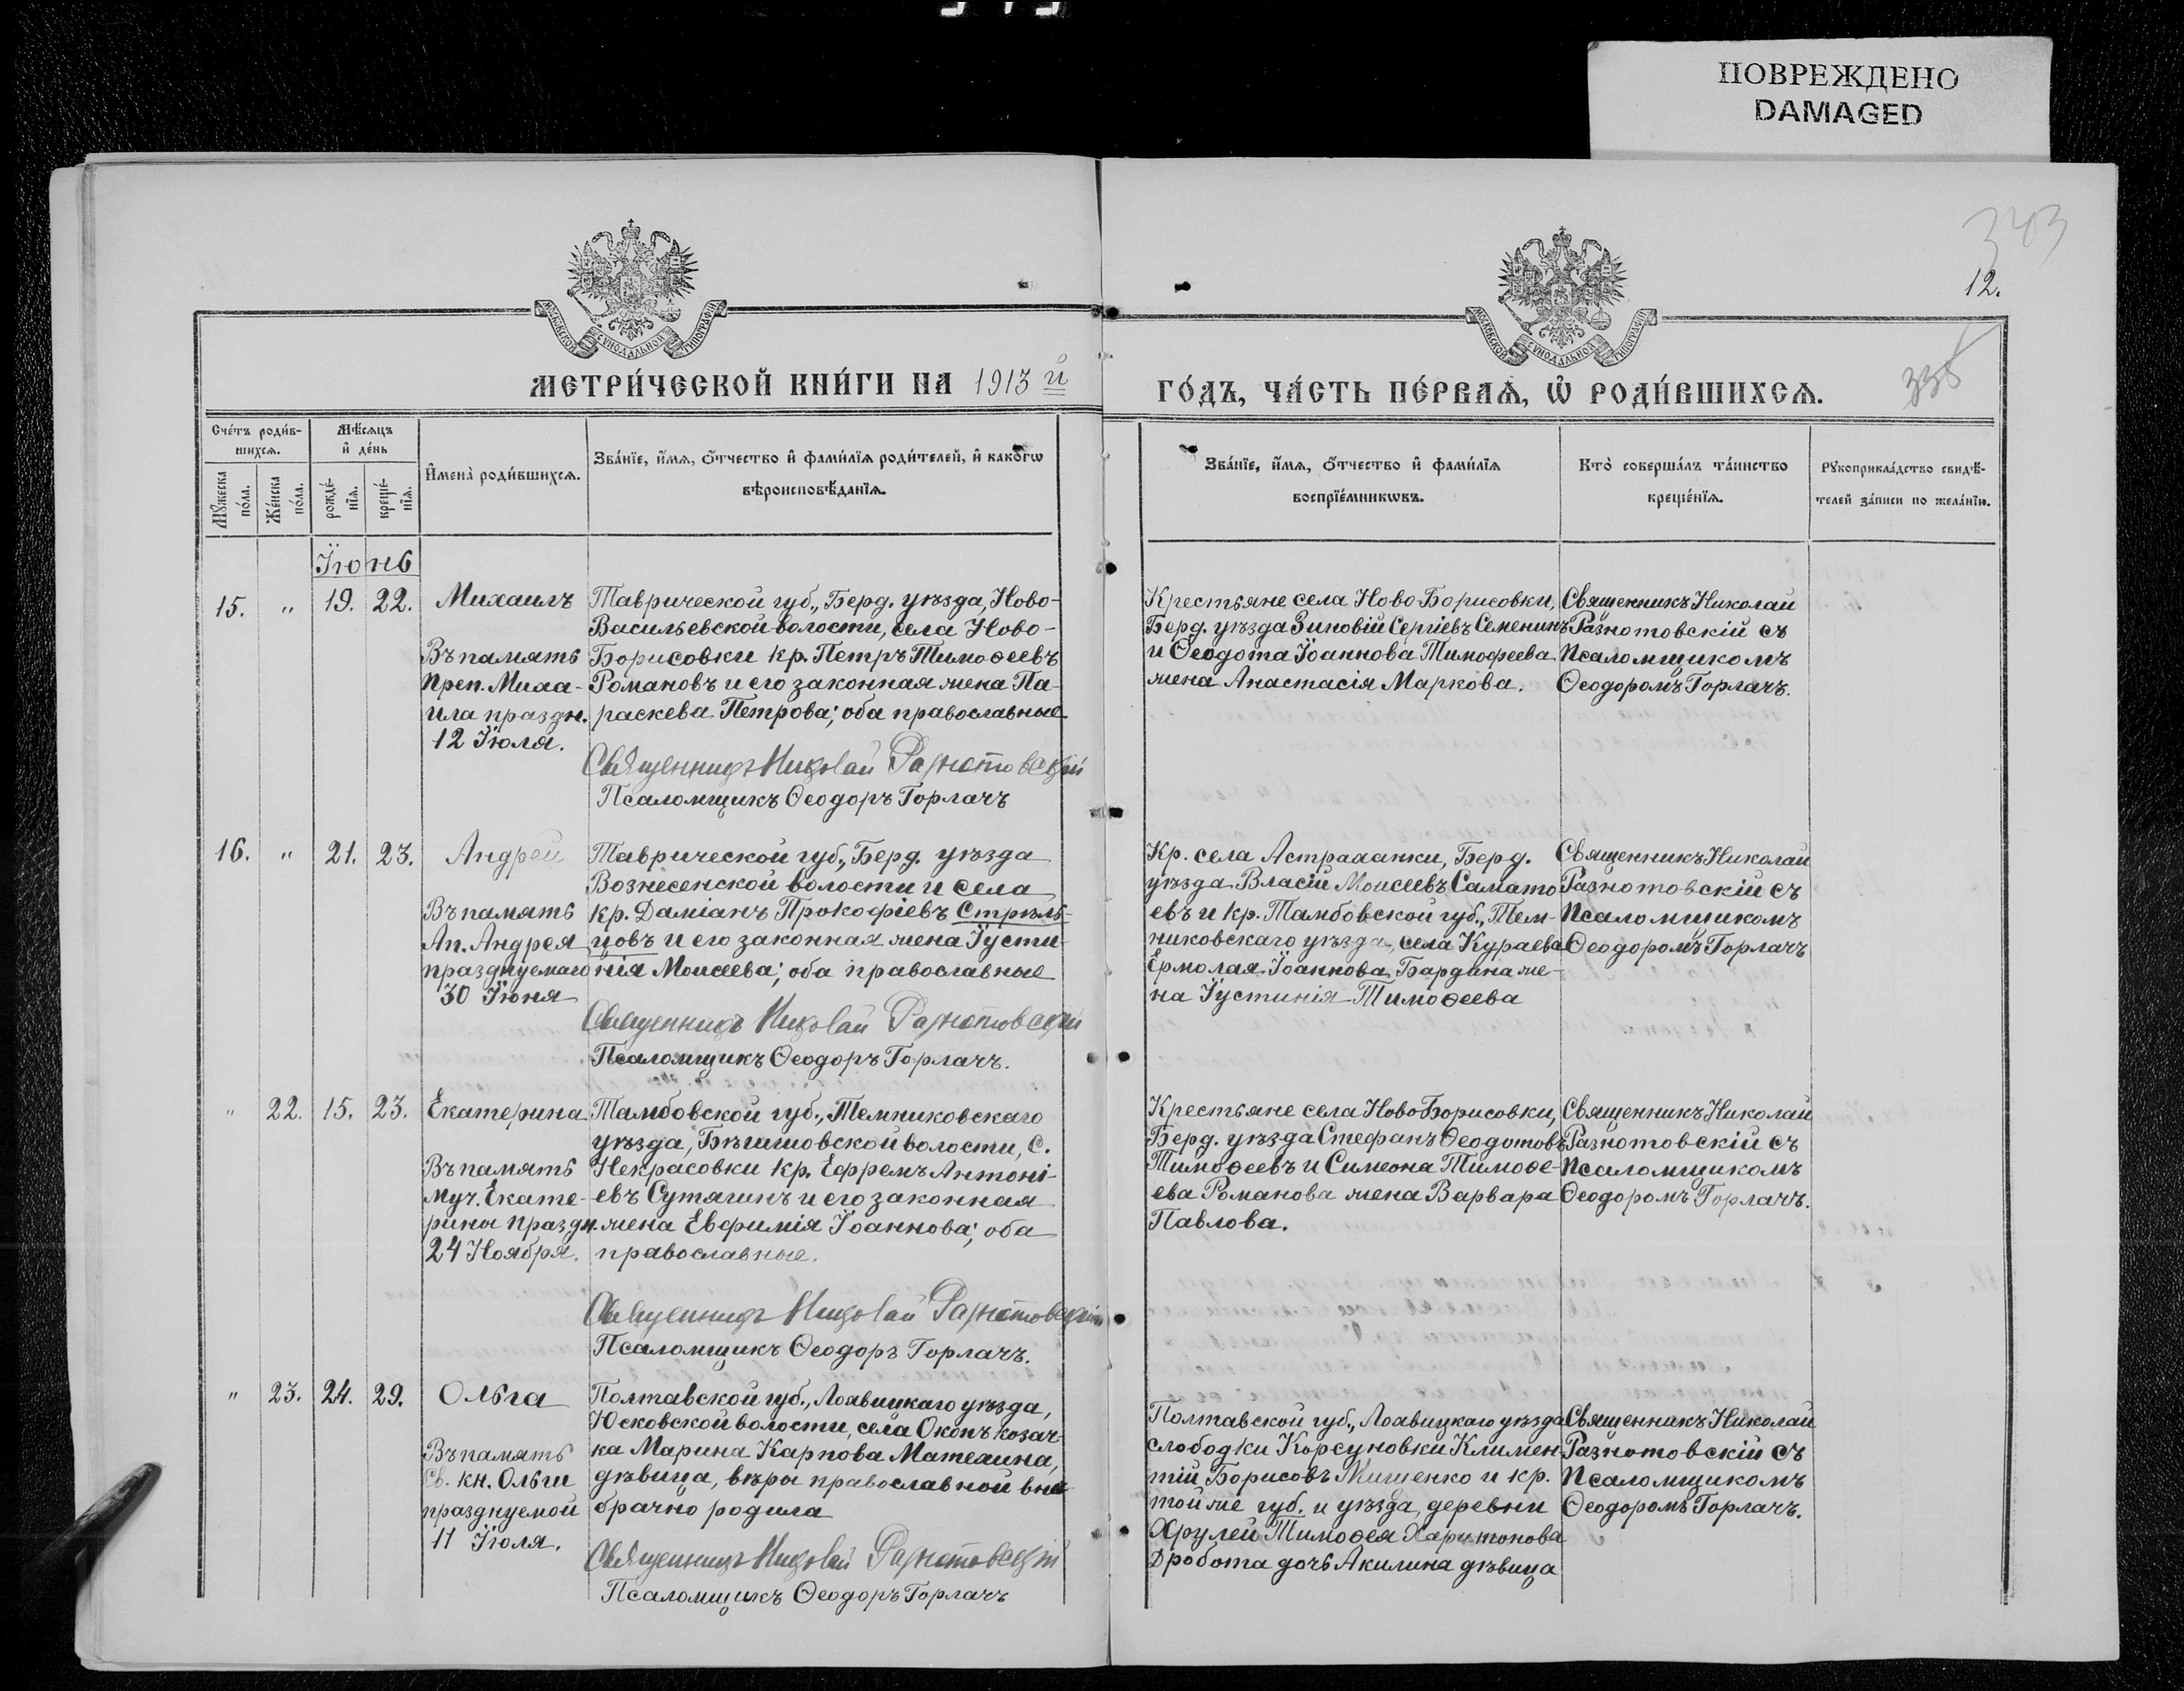 ПОВРЕЖДЕНО
DAMAGED
12.
МОСКОВСКОЙ СУНОДАЛЬНОЙ ТИПОГРАФІИ
МОСКОВСКОЙ СУНОДАЛЬНОЙ ТИПОГРАФІИ
МЕТРИ́ЧЕСКОЙ КНИ́ГИ НА 1913 й
ГО́ДЪ, ЧА́СТЬ ПЕ́РВАѦ, Ѡ҆ РОДИ́ВШИХСѦ.
Сче́тъ роди́в-
шихсѧ.
Мꙋ́жеска по́ла.
Же́нска по́ла.
Мѣ́сѧцъ
и҆ де́нь
рожде́-
нїѧ.
креще́-
нїѧ.
И҆мена̀ роди́вшихсѧ.
Зва́нїе, и҆́мѧ, ѻ҆́тчество и҆ фами́лїѧ роди́телей, и҆ како́гѡ
вѣроисповѣ́данїѧ.
Зва́нїе, и҆́мѧ, ѻ҆́тчество и҆ фами́лїѧ
воспрїе́мникѡвъ.
Кто̀ соверша́лъ та́инство
креще́нїѧ.
Рꙋкоприкла́дство свидѣ́-
телей за́писи по жела́нїю.
Їюнь
15. „ 19. 22. Михаилъ
Въ память
Преп. Миха-
ила праздн.
12 Їюля.
Таврической губ., Берд. уѣзда, Ново-
Васильевской волости, села Ново-
Борисовки кр. Петръ Тимоѳеевъ
Романовъ и его законная жена Па-
раскева Петрова; оба православные
Священникъ Николай Разнотовскій
Псаломщикъ Ѳеодоръ Горлачъ
Крестьяне села Ново Борисовки,
Берд. уѣзда Зиновій Сергіевъ Семенинъ
и Ѳеодота Їоаннова Тимофеева
жена Анастасія Маркова.
Священникъ Николай
Разнотовскій съ
Псаломщикомъ
Ѳеодоромъ Горлачъ.
16. „ 21. 23. Андрей
Въ память
Ап. Андрея
празднуемаго
30 Їюня
Таврической губ., Берд. уѣзда
Вознесенской волости и села
кр. Даміанъ Прокофіевъ Стрѣль-
цовъ и его законная жена Їусти-
нія Моисеева; оба православные
Священникъ Николай Разнотовскій
Псаломщикъ Ѳеодоръ Горлачъ.
Кр. села Астраханки, Берд.
уѣзда Власій Моисеевъ Самато
евъ и кр. Тамбовской губ., Тем-
никовскаго уѣзда, села Кураева
Ермолая Їоаннова Бардина же-
на Їустинія Тимоѳеева
Священникъ Николай
Разнотовскій съ
Псаломщикомъ
Ѳеодоромъ Горлачъ
„ 22. 15. 23. Екатерина
Въ память
Муч. Екате-
рины праздн.
24 Ноября.
Тамбовской губ., Темниковскаго
уѣзда, волости, с.
Некрасовки кр. Ефремъ Антоні-
евъ Сутягинъ и его законная
жена Евфимія Їоаннова; оба
православные.
Священникъ Николай Разнотовскій
Псаломщикъ Ѳеодоръ Горлачъ.
Крестьяне села Ново Борисовки,
Берд. уѣзда Стефанъ Ѳеодотовъ
Тимоѳеевъ и Симеона Тимоѳе-
ева Романова жена Варвара
Павлова.
Священникъ Николай
Разнотовскій съ
Псаломщикомъ
Ѳеодоромъ Горлачъ.
„ 23. 24. 29. Ольга
Въ память
Св. кн. Ольги
празднуемой
11 Їюля.
Полтавской губ., Лохвицкаго уѣзда,
Юсковской волости, села Окопъ козач-
ка Марина Карпова Матехина,
дѣвица, вѣры православной внѣ-
брачно родила
Священникъ Николай Разнотовскій
Псаломщикъ Ѳеодоръ Горлачъ
Полтавской губ., Лохвицкаго уѣзда
слободки Корсуновки Климен-
тій Борисовъ Мищенко и кр.
той же губ. и уѣзда, деревни
Хрулей Тимоѳея Харитонова
Дробота дочь Акилина дѣвица
Священникъ Николай
Разнотовскій съ
Псаломщикомъ
Ѳеодоромъ Горлачъ.